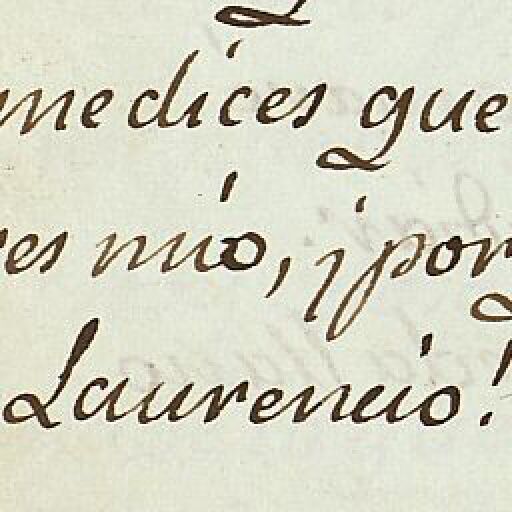 me dices que
es mio, ¡por
Laurencio!